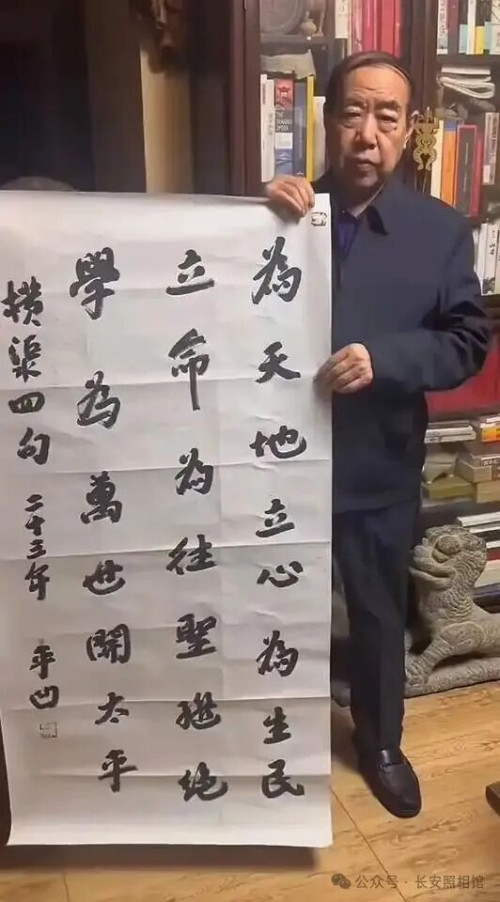 為天地立心為生民
立命為往聖繼绝
學為萬世開太平
横渠四句 二十三年 平凹
公众号·长安照相馆